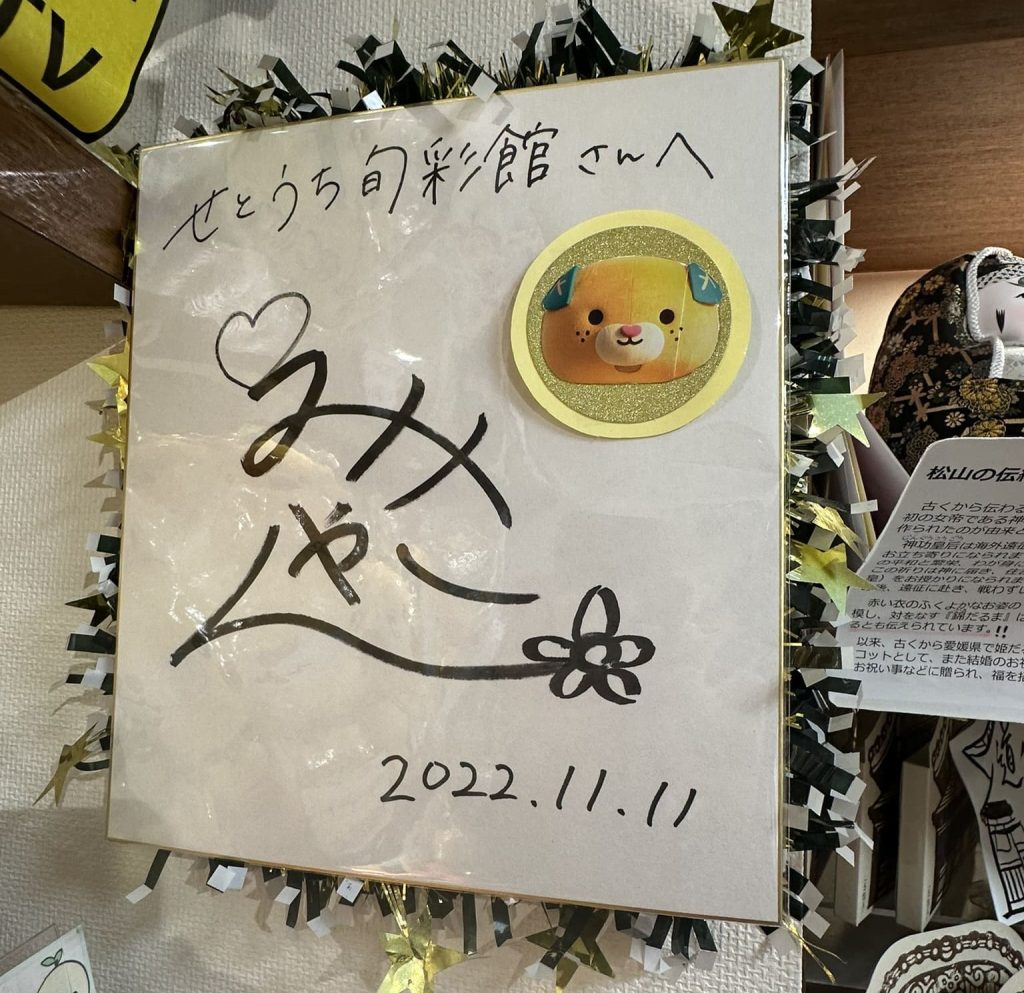 せとうち旬彩館さんへ
みきゃん
2022.11.11
松山の伝
古くから伝わる
初の女帝である神
作られたのが由来と
神功皇后は海外遠
お立ち寄りになられま
の平和と繁栄、わが身に
この祈りは神に届き、
皇）をお授かりになられま
後、遠征に赴き、戦わずし
赤い衣のふくよかなお姿の
模し、対をなす『錦だるま』は
るとも伝えられています。!!
以来、古くから愛媛県で姫だ
コットとして、また結婚のお
お祝い事などに贈られ、福を招
道